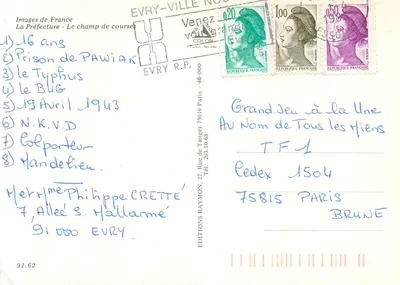 Images de France
La Préfecture - Le champ de courses
1) 16 ans
2) Prison de PAWIAK
3) le Typhus
4) le BUG
5) 19 Avril 1943
6) N.K.V.D
7) Colporteur
8) Mandelieu.
Mr et Mme Philippe CRETTÉ
7, Allée S. Mallarmé
91000 EVRY.
91.62
EVRY-VILLE NOU
Venez
EVRY R.P.
0,20
1,00
EDITIONS RAYMON, 27, Rue de Tanger 75019 Paris - 46-000
Tél. 203.10.68
GRAND Jeu à la Une
Au Nom de Tous les Miens
TF1
Cedex 1504
75815 PARIS
BRUNE